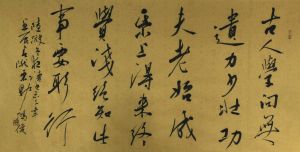 古人學問無
遺力少壯功
夫老始成
紙上得來終
覺淺絕知此
事要躬行
陸游